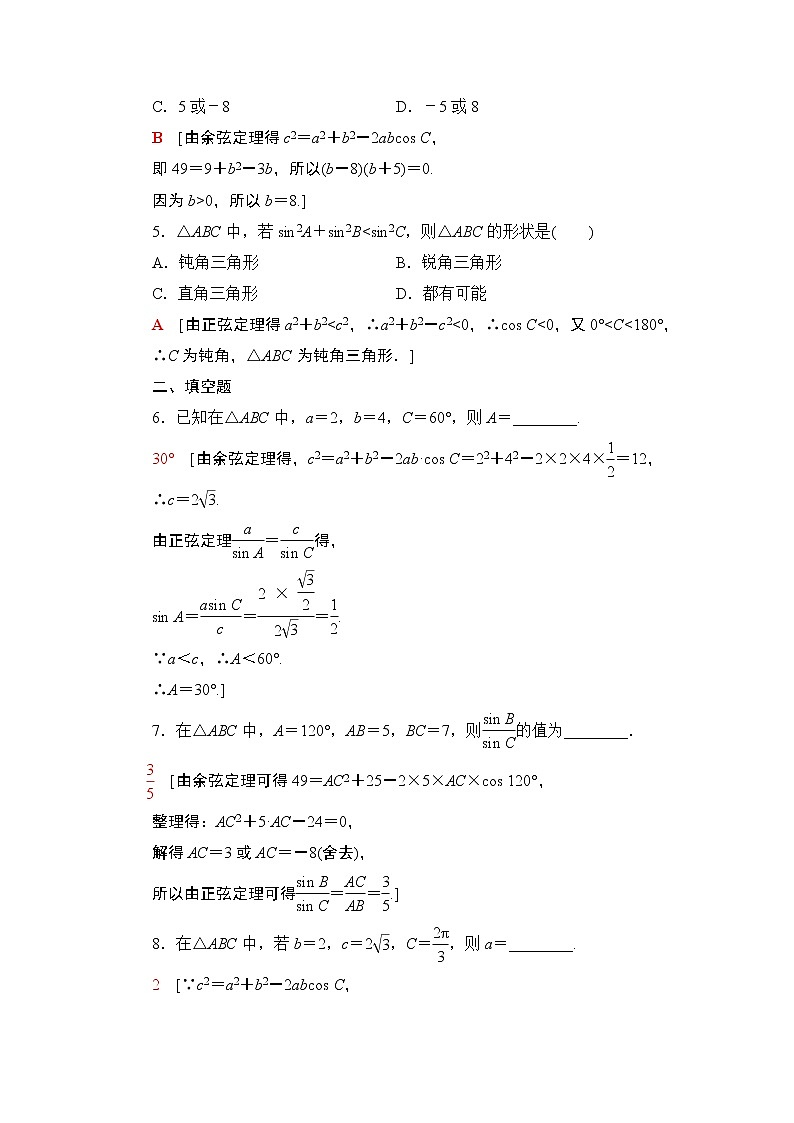 C．5或－8　　D．－5或8
B　[由余弦定理得c²＝a²＋b²－2abcos C，
即49＝9＋b²－3b，所以(b－8)(b＋5)＝0.
因为b>0，所以b＝8.]
5．△ABC中，若sin²A＋sin²B<sin²C，则△ABC的形状是(　　)
A．钝角三角形　　B．锐角三角形
C．直角三角形　　D．都有可能
A　[由正弦定理得a²＋b²<c²，∴a²＋b²－c²<0，∴cos C<0，又0°<C<180°，
∴C为钝角，△ABC为钝角三角形．]
二、填空题
6．已知在△ABC中，a＝2，b＝4，C＝60°，则A＝________.
30°　[由余弦定理得，c²＝a²＋b²－2ab·cos C＝2²＋4²－2×2×4×1/2＝12，
∴c＝2√3.
由正弦定理a/sin A＝c/sin C得，
sin A＝asin C/c＝(2 × √3/2)/(2√3)＝1/2.
∵a＜c，∴A＜60°.
∴A＝30°.]
7．在△ABC中，A＝120°，AB＝5，BC＝7，则sin B/sin C的值为________．
3/5　[由余弦定理可得49＝AC²＋25－2×5×AC×cos 120°，
整理得：AC²＋5·AC－24＝0，
解得AC＝3或AC＝－8(舍去)，
所以由正弦定理可得sin B/sin C＝AC/AB＝3/5.]
8．在△ABC中，若b＝2，c＝2√3，C＝2π/3，则a＝________.
2　[∵c²＝a²＋b²－2abcos C，